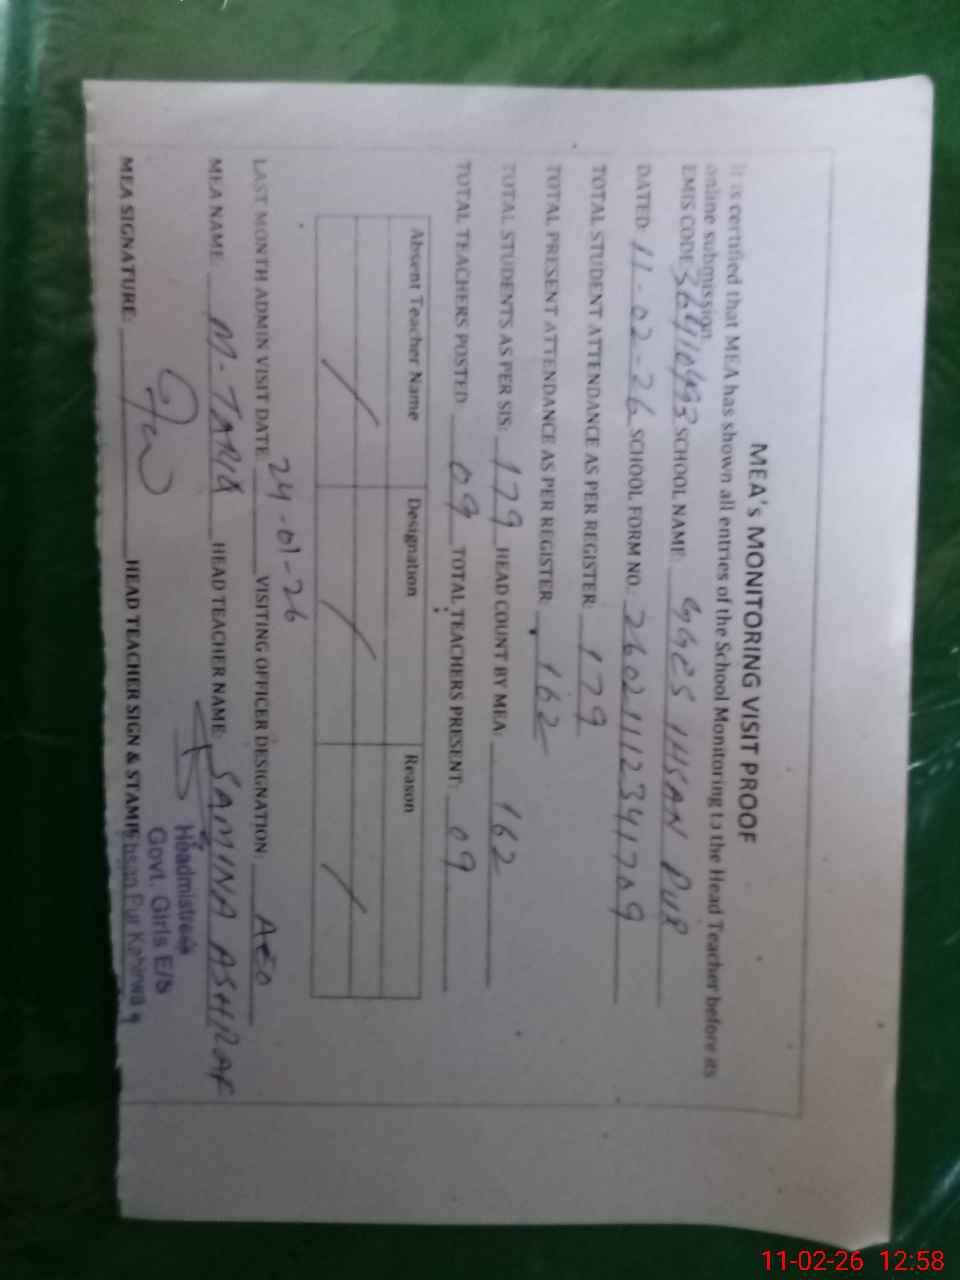 MEA's MONITORING VISIT PROOF
It is certified that MEA has shown all entries of the School Monitoring to the Head Teacher before its
online submission.
EMIS CODE 36410493 SCHOOL NAME: GGES IHSAN PUR
DATED 11-02-26 SCHOOL FORM NO.: 26021112341709
TOTAL STUDENT ATTENDANCE AS PER REGISTER: 179
TOTAL PRESENT ATTENDANCE AS PER REGISTER: 162
TOTAL STUDENTS AS PER SIS: 179 HEAD COUNT BY MEA: 162
TOTAL TEACHERS POSTED: 09 TOTAL TEACHERS PRESENT: 09
Absent Teacher Name Designation Reason
LAST MONTH ADMIN VISIT DATE: 24-01-26 VISITING OFFICER DESIGNATION: AEO
MEA NAME: M-TARIQ HEAD TEACHER NAME: SAMINA ASHRAF
MEA SIGNATURE: HEAD TEACHER SIGN & STAMP:
Headmistress
Govt. Girls E/S
Ihsan Pur
11-02-26 12:58